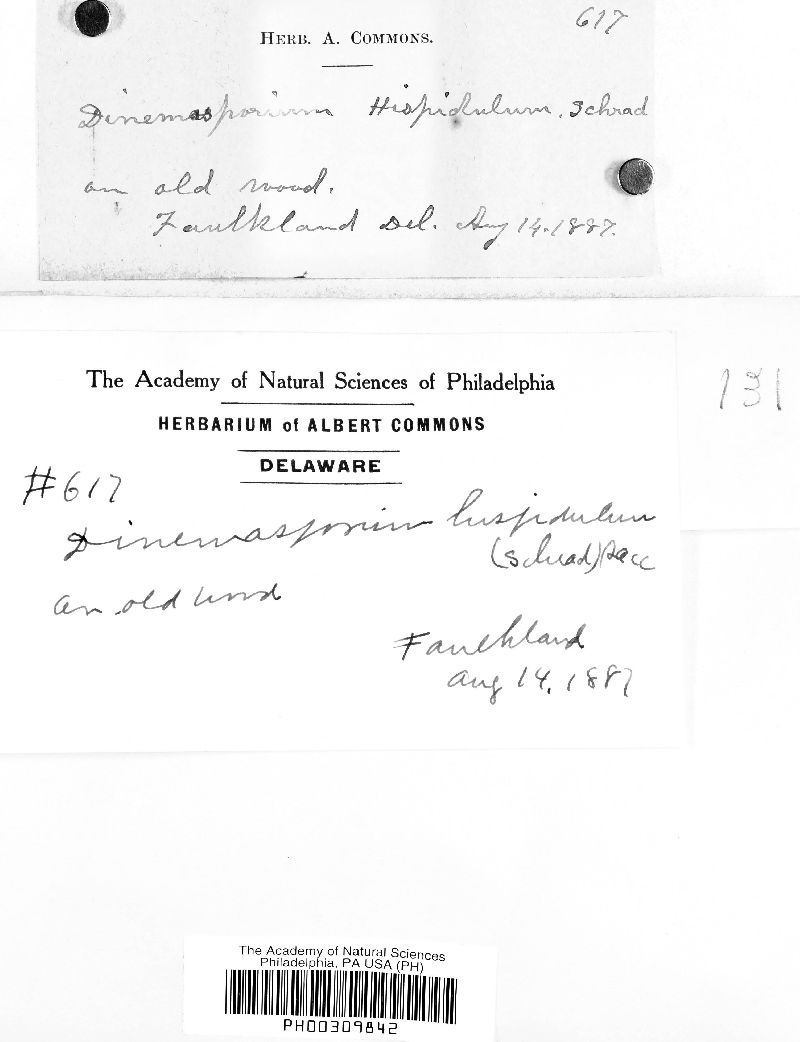 617
HERB. A. COMMONS.
Dinemasporium Hispidulum. Schrad
on old wood.
Faulkland Del. Aug 14.1887.
131
The Academy of Natural Sciences of Philadelphia
HERBARIUM of ALBERT COMMONS
DELAWARE
#617
Dinemasporium hispidulum
(Schrad) Sacc
on old wood
Faulkland
Aug 14, 1887
The Academy of Natural Sciences
Philadelphia, PA USA (PH)
PH00309842